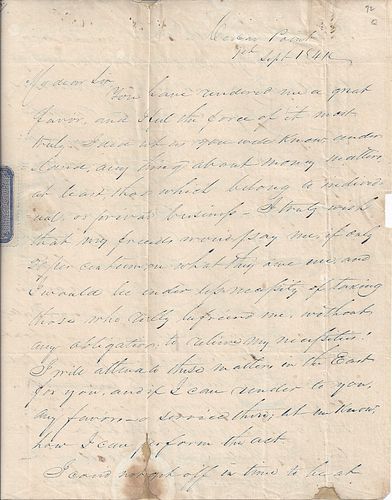 72
Cedar Point
9th Sept 1841
My dear Sir,
You have rendered me a great
favor, and I feel the force of it most
truly. I did not as you well know under
stand, any thing about money matters
at least those which belong to individ
uals, or private business - I truly wish
that my friends would pay me, if only
per centum on what they owe me, and
I would be under less necessity of taxing
those who daily befriend me, without
any obligation, to relieve my necessities.
I will attenuate these matters in the East
for you, and if I can render to you,
any favor or service there, let me know,
how I can perform the act.
I could not get off in time to be at